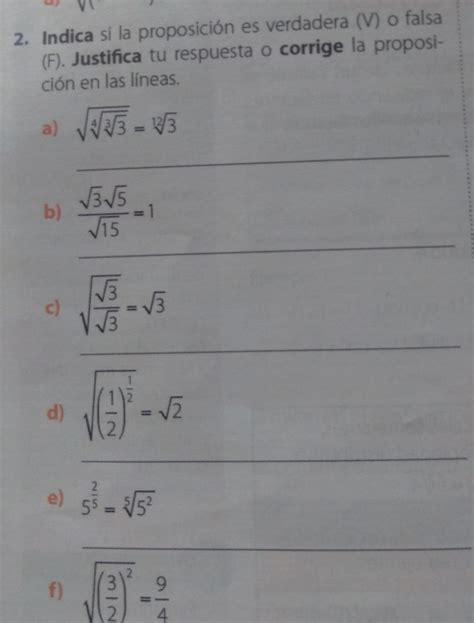 2. Indica si la proposición es verdadera (V) o falsa
(F). Justifica tu respuesta o corrige la proposi-
ción en las líneas.
a) √(⁴√(³√3)) = ¹²√3
b) √3√5 / √15 = 1
c) √(√3 / √3) = √3
d) √((1/2)^(1/2)) = √2
e) 5^(2/5) = ⁵√(5²)
f) √((3/2)²) = 9/4